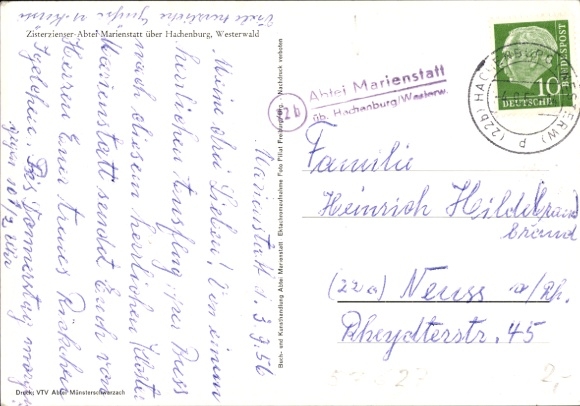 Viele herzliche Grüße
Zisterzienser-Abtei Marienstatt über Hachenburg, Westerwald
Marienstatt d. 3.9.56
Meine drei Lieben! Von einem
herrlichen Ausflug per Buss
nach diesem herrlichen
Marienstatt sendet Euch von
Herzen Euer treues
Bis Donnerstag morgen
gegen 10 1/2 Uhr
Druck: VTV Abtei Münsterschwarzach
Buch- und Kunsthandlung Abtei Marienstatt
Nachdruck verboten
(22b)
Abtei Marienstatt
üb. Hachenburg/Westerw.
DEUTSCHE BUNDESPOST
10
(22b) HACHENBURG (WESTERW)
Familie
Heinrich Hildebrand
brand
(22a) Neuss a/Rh.
Rheydterstr. 45
2,-